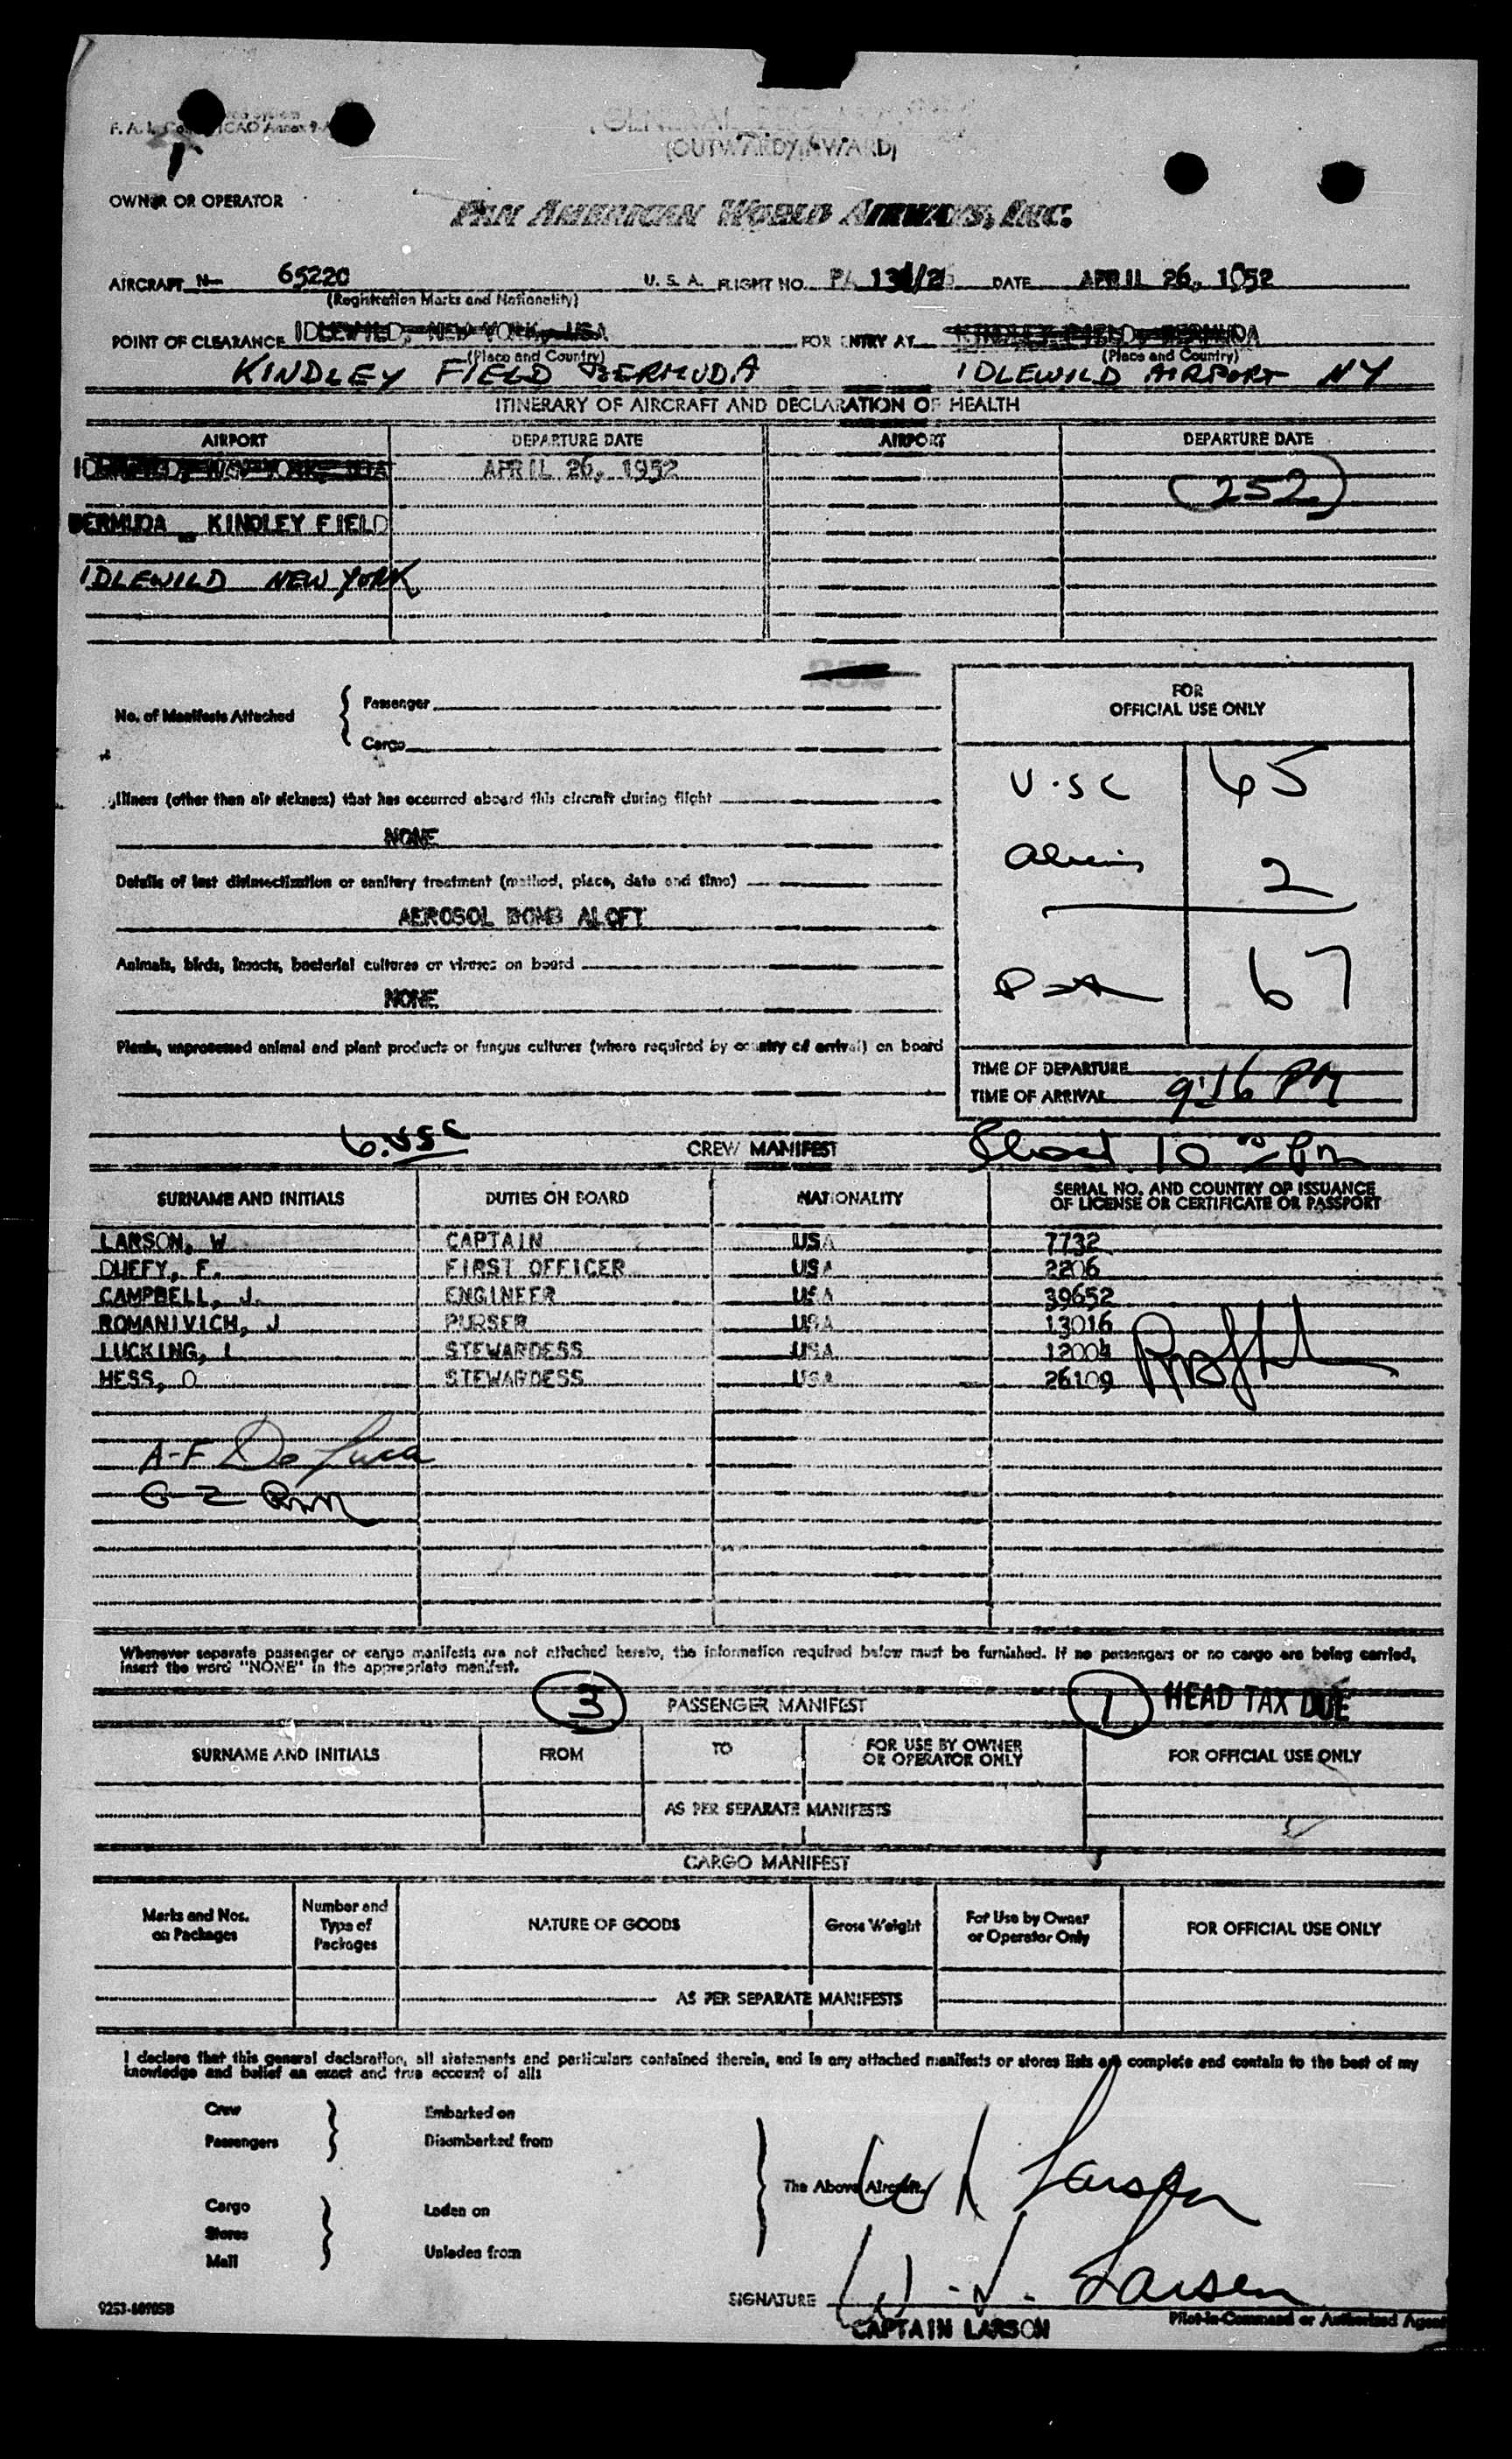 (OUTWARD/INWARD)
OWNER OR OPERATOR
PAN AMERICAN WORLD AIRWAYS, INC.
AIRCRAFT N- 65220 U. S. A. FLIGHT NO. PA DATE APRIL 26, 1952
(Registration Marks and Nationality)
POINT OF CLEARANCE IDLEWILD, NEW YORK, USA FOR ENTRY AT KINDLEY FIELD, BERMUDA
(Place and Country) (Place and Country)
KINDLEY FIELD BERMUDA IDLEWILD AIRPORT NY
ITINERARY OF AIRCRAFT AND DECLARATION OF HEALTH
AIRPORT DEPARTURE DATE AIRPORT DEPARTURE DATE
IDLEWILD, NEW YORK, USA APRIL 26, 1952
(252)
BERMUDA KINDLEY FIELD
IDLEWILD NEW YORK
No. of Manifests Attached
Passenger
Cargo
FOR
OFFICIAL USE ONLY
U.S.C 65
Aliens 2
67
Illness (other than air sickness) that has occurred aboard this aircraft during flight
NONE
Details of last disinsectization or sanitary treatment (method, place, date and time)
AEROSOL BOMB ALOFT
Animals, birds, insects, bacterial cultures or viruses on board
NONE
Plants, unprocessed animal and plant products or fungus cultures (where required by country of arrival) on board
TIME OF DEPARTURE
TIME OF ARRIVAL 9:16 PM
6 USC
CREW MANIFEST
SURNAME AND INITIALS DUTIES ON BOARD NATIONALITY SERIAL NO. AND COUNTRY OF ISSUANCE
OF LICENSE OR CERTIFICATE OR PASSPORT
LARSON, W CAPTAIN USA 7732
DUFFY, F. FIRST OFFICER USA 2206
CAMPBELL, J. ENGINEER USA 39652
ROMANIVICH, J PURSER USA 13016
LUCKING, L STEWARDESS USA 12004
HESS, O STEWARDESS USA 26109
A-F De Luca
G-Z
Whenever separate passenger or cargo manifests are not attached hereto, the information required below must be furnished. If no passengers or no cargo are being carried,
insert the word "NONE" in the appropriate manifest.
3 PASSENGER MANIFEST 1 HEAD TAX DUE
SURNAME AND INITIALS FROM TO FOR USE BY OWNER
OR OPERATOR ONLY FOR OFFICIAL USE ONLY
AS PER SEPARATE MANIFESTS
CARGO MANIFEST
Marks and Nos.
on Packages
Number and
Type of
Packages
NATURE OF GOODS
Gross Weight
For Use by Owner
or Operator Only
FOR OFFICIAL USE ONLY
AS PER SEPARATE MANIFESTS
I declare that this general declaration, all statements and particulars contained therein, and in any attached manifests or stores lists are complete and contain to the best of my
knowledge and belief an exact and true account of all:
Crew Embarked on
Passengers Disembarked from
The Above Aircraft.
W Larson
Cargo Laden on
Stores
Mail Unladen from
SIGNATURE W. Larson
Pilot-in-Command or Authorized Agent
CAPTAIN LARSON